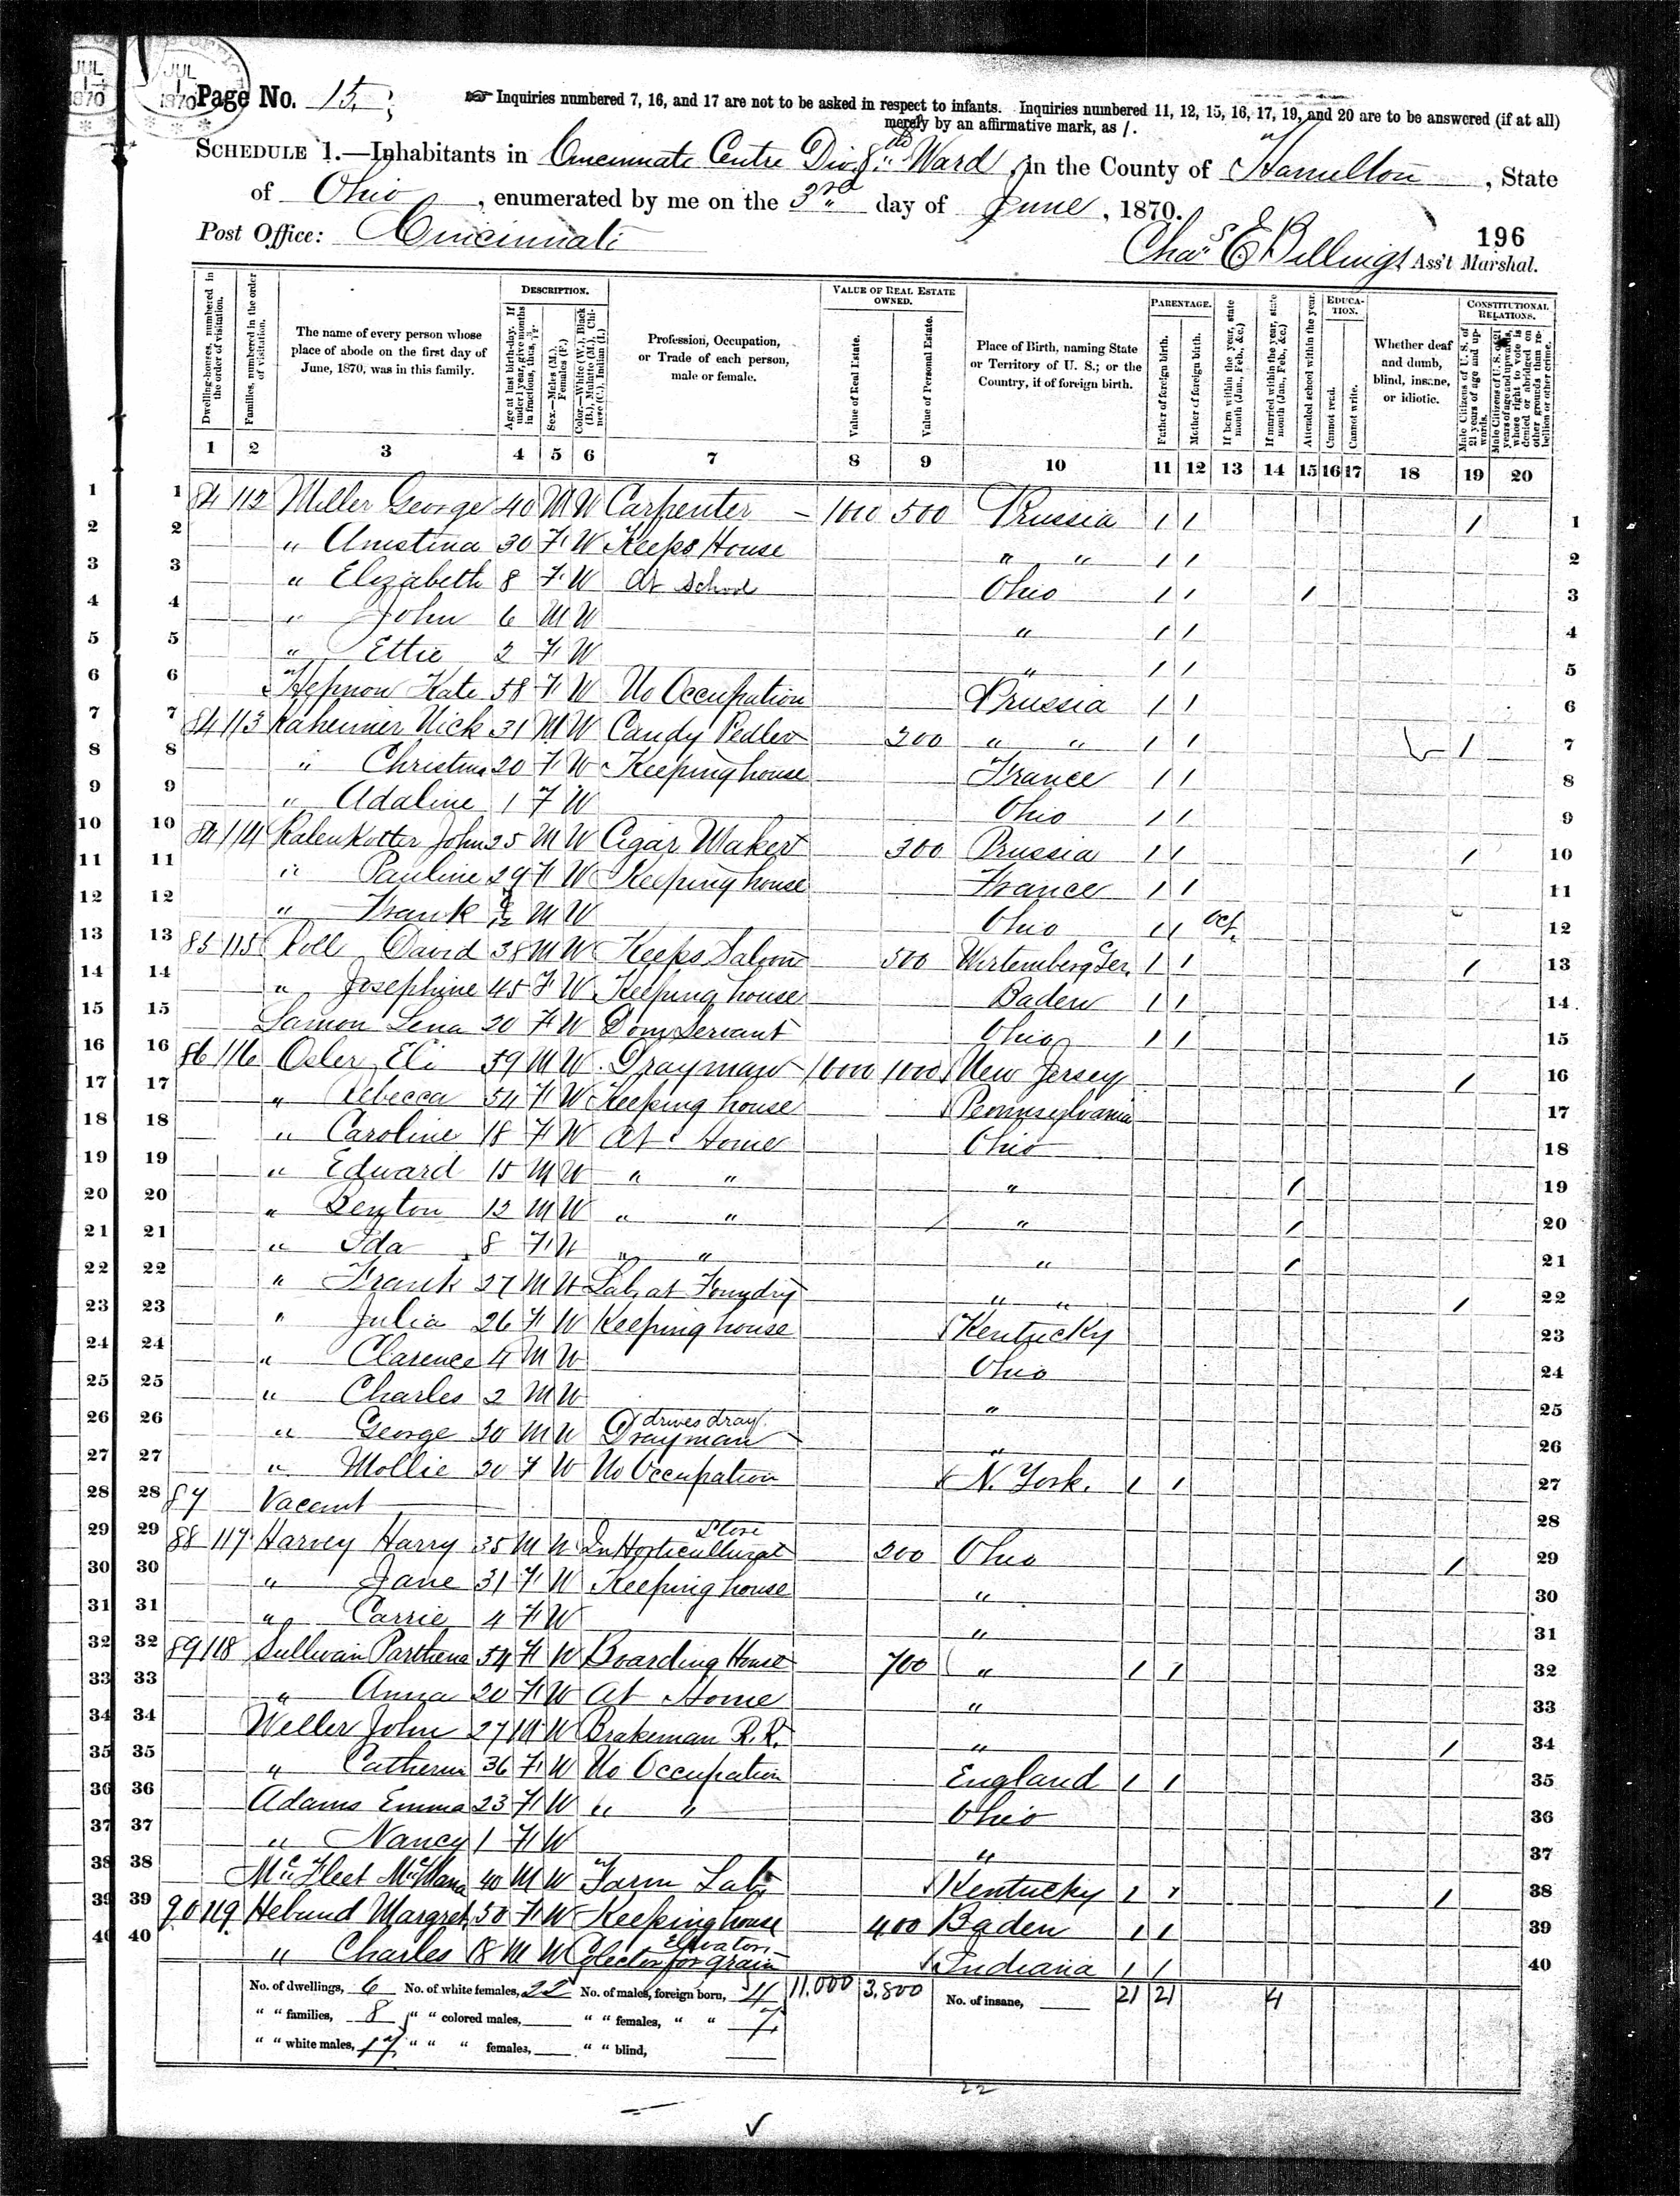 JUL 1 1870
JUL 1 1870
Page No. 15
☞ Inquiries numbered 7, 16, and 17 are not to be asked in respect to infants. Inquiries numbered 11, 12, 15, 16, 17, 19, and 20 are to be answered (if at all)
merely by an affirmative mark, as /.
SCHEDULE 1.—Inhabitants in Cincinnati Centre Div 8th Ward, in the County of Hamilton, State
of Ohio, enumerated by me on the 3rd day of June, 1870.
Post Office: Cincinnati
196
Chas E Billings Ass't Marshal.
DESCRIPTION.
VALUE OF REAL ESTATE OWNED.
PARENTAGE.
EDUCATION.
CONSTITUTIONAL RELATIONS.
Dwelling-houses, numbered in the order of visitation.
Families, numbered in the order of visitation.
The name of every person whose place of abode on the first day of June, 1870, was in this family.
Age at last birth-day. If under 1 year, give months in fractions, thus, 3/12.
Sex.—Males (M.), Females (F.)
Color.—White (W.), Black (B.), Mulatto (M.), Chinese (C.), Indian (I.)
Profession, Occupation, or Trade of each person, male or female.
Value of Real Estate.
Value of Personal Estate.
Place of Birth, naming State or Territory of U. S.; or the Country, if of foreign birth.
Father of foreign birth.
Mother of foreign birth.
If born within the year, state month (Jan., Feb., &c.)
If married within the year, state month (Jan., Feb., &c.)
Attended school within the year.
Cannot read.
Cannot write.
Whether deaf and dumb, blind, insane, or idiotic.
Male Citizens of U. S. of 21 years of age and upwards.
Male Citizens of U. S. of 21 years of age and upwards, whose right to vote is denied or abridged on other grounds than rebellion or other crime.
1 2 3 4 5 6 7 8 9 10 11 12 13 14 15 16 17 18 19 20
1 1 84 112 Miller George 40 M W Carpenter 1000 500 Prussia / / / 1
2 2 " Christina 30 F W Keeps House " " / / 2
3 3 " Elizabeth 8 F W At School Ohio / / / 3
4 4 " John 6 M W " / / 4
5 5 " Ettie 2 F W " / / 5
6 6 Kate 58 F W No Occupation Prussia / / 6
7 7 84 113 Kaheimer Nick 31 M W Candy Pedler 300 " " / / / 7
8 8 " Christina 20 F W Keeping house France / / 8
9 9 " Adaline 1 F W Ohio / / 9
10 10 84 114 Kalenkotter John 25 M W Cigar Maker 300 Prussia / / / 10
11 11 " Pauline 29 F W Keeping house France / / 11
12 12 " Frank M W Ohio / / Oct. 12
13 13 85 115 Roll David 38 M W Keeps Saloon 500 Wirtemberg Ger. / / / 13
14 14 " Josephine 45 F W Keeping house Baden / / 14
15 15 Samon Lena 20 F W Dom Servant Ohio / / 15
16 16 86 116 Osler Eli 59 M W Drayman 1000 New Jersey / 16
17 17 " Rebecca 54 F W Keeping house Pennsylvania 17
18 18 " Caroline 18 F W At Home Ohio 18
19 19 " Edward 15 M W " " " / 19
20 20 " Benton 12 M W " " " / 20
21 21 " Ida 8 F W " " " / 21
22 22 " Frank 27 M W Lab at Foundry " " / 22
23 23 " Julia 26 F W Keeping house Kentucky 23
24 24 " Clarence 4 M W Ohio 24
25 25 " Charles 2 M W " 25
26 26 " George 30 M W drives dray Drayman " 26
27 27 " Mollie 20 F W No Occupation N. York. / / 27
28 28 87 Vacant 28
29 29 88 117 Harvey Harry 35 M W In Horticultural Store 200 Ohio / 29
30 30 " Jane 31 F W Keeping house " 30
31 31 " Carrie 4 F W " 31
32 32 89 118 Sullivan Parthena 54 F W Boarding House 700 " / / 32
33 33 " Anna 20 F W At Home " 33
34 34 Weller John 27 M W Brakeman R.R. " / 34
35 35 " Catherin 36 F W No Occupation England / / 35
36 36 Adams Emma 23 F W " " Ohio 36
37 37 " Nancy 1 F W " 37
38 38 McFleet 40 M W Farm Lab Kentucky / / / 38
39 39 90 119 Hebund Margret 50 F W Keeping house 400 Baden / / 39
40 40 " Charles 18 M W for grain Elevator Indiana / / 40
No. of dwellings, 6 No. of white females, 22 No. of males, foreign born, 4 11.000 3.800 No. of insane, 21 21 4
" " families, 8 " " colored males, " " females, " " 7
" " white males, 17 " " " females, " " blind,
22